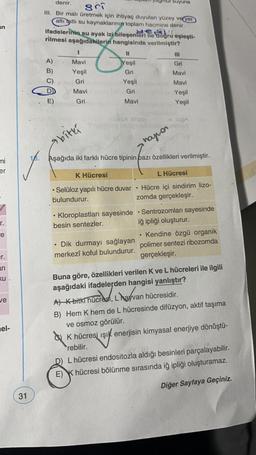 denir.
gri
III. Bir malı üretmek için ihtiyaç duyulan yüzey ve yer
altı tatlı su kaynaklarının toplam hacmine denir.
ifadelerinin su ayak izi bileşenleri ile doğru eşleşti-
rilmesi aşağıdakilerin hangisinde verilmiştir?
I II III
A) Mavi Yeşil Gri
B) Yeşil Gri Mavi
C) Gri Yeşil Mavi
D) Mavi Gri Yeşil
E) Gri Mavi Yeşil
bitki
hayvan
Aşağıda iki farklı hücre tipinin bazı özellikleri verilmiştir.
K Hücresi L Hücresi
• Selüloz yapılı hücre duvarı bulundurur.
• Hücre içi sindirim lizozomda gerçekleşir.
• Kloroplastları sayesinde besin sentezler.
• Sentrozomları sayesinde iğ ipliği oluşturur.
• Dik durmayı sağlayan merkezî koful bulundurur.
• Kendine özgü organik polimer sentezi ribozomda gerçekleşir.
Buna göre, özellikleri verilen K ve L hücreleri ile ilgili
aşağıdaki ifadelerden hangisi yanlıştır?
A) K bitki hücresi, L hayvan hücresidir.
B) Hem K hem de L hücresinde difüzyon, aktif taşıma
ve osmoz görülür.
C) K hücresi ışık enerjisin kimyasal enerjiye dönüştü-
rebilir.
D) L hücresi endositozla aldığı besinleri parçalayabilir.
E) K hücresi bölünme sırasında iğ ipliği oluşturamaz.
Diğer Sayfaya Geçiniz.
31